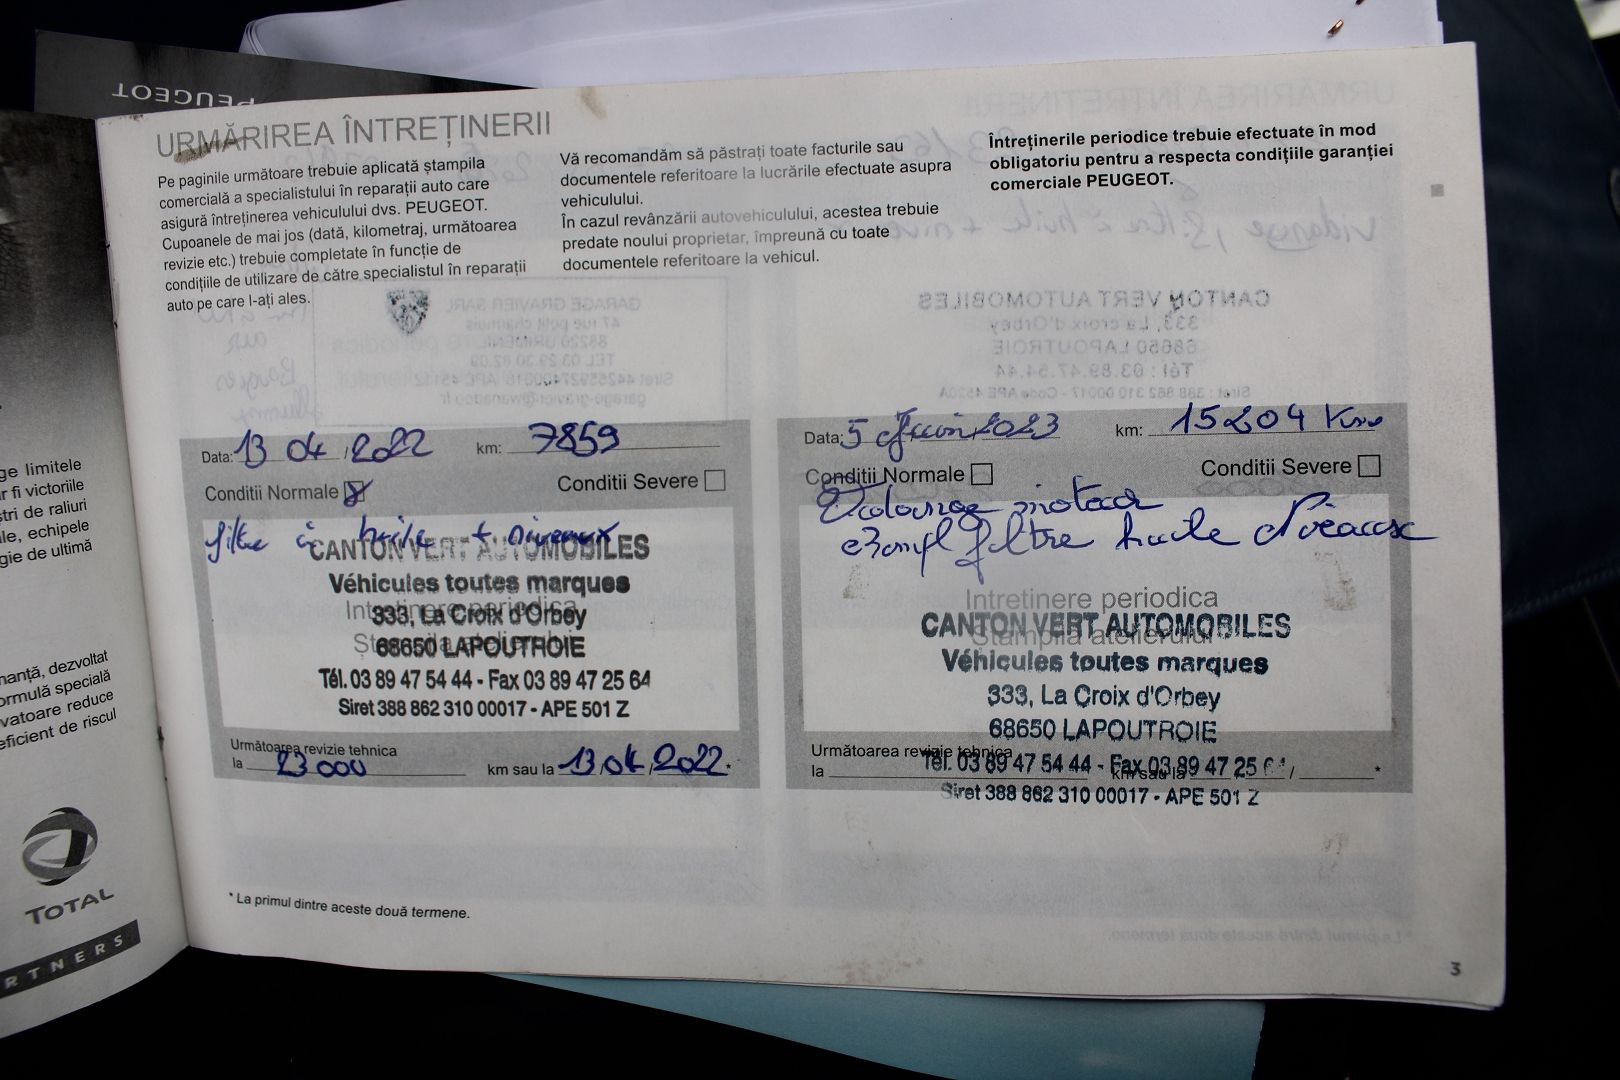 PEUGEOT
URMĂRIREA ÎNTREȚINERII
Pe paginile următoare trebuie aplicată ștampila
comercială a specialistului în reparații auto care
asigură întreținerea vehiculului dvs. PEUGEOT.
Cupoanele de mai jos (dată, kilometraj, următoarea
revizie etc.) trebuie completate în funcție de
condițiile de utilizare de către specialistul în reparații
auto pe care l-ați ales.
Vă recomandăm să păstrați toate facturile sau
documentele referitoare la lucrările efectuate asupra
vehiculului.
În cazul revânzării autovehiculului, acestea trebuie
predate noului proprietar, împreună cu toate
documentele referitoare la vehicul.
Întreținerile periodice trebuie efectuate în mod
obligatoriu pentru a respecta condițiile garanției
comerciale PEUGEOT.
Data: 13 04 / 2022 km: 7859
Conditii Normale Conditii Severe
filtre à huile + niveaux
CANTON VERT AUTOMOBILES
Véhicules toutes marques
Intretinere periodica
333, La Croix d'Orbey
68650 LAPOUTROIE
Tél. 03 89 47 54 44 - Fax 03 89 47 25 64
Siret 388 862 310 00017 - APE 501 Z
Următoarea revizie tehnica
la 23 000 km sau la 13/04/2022*
Data: 5 Juin 2023 km: 15204 Km
Conditii Normale Conditii Severe
moteur
filtre huile
Intretinere periodica
Stampila atelierului
CANTON VERT AUTOMOBILES
Véhicules toutes marques
333, La Croix d'Orbey
68650 LAPOUTROIE
Următoarea revizie tehnica
Tél. 03 89 47 54 44 - Fax 03 89 47 25 64
la km sau la / *
Siret 388 862 310 00017 - APE 501 Z
* La primul dintre aceste două termene.
3
ge limitele
r fi victoriile
tri de raliuri
le, echipele
gie de ultimă
nanță, dezvoltat
ormulă specială
vatoare reduce
eficient de riscul
TOTAL
RTNERS